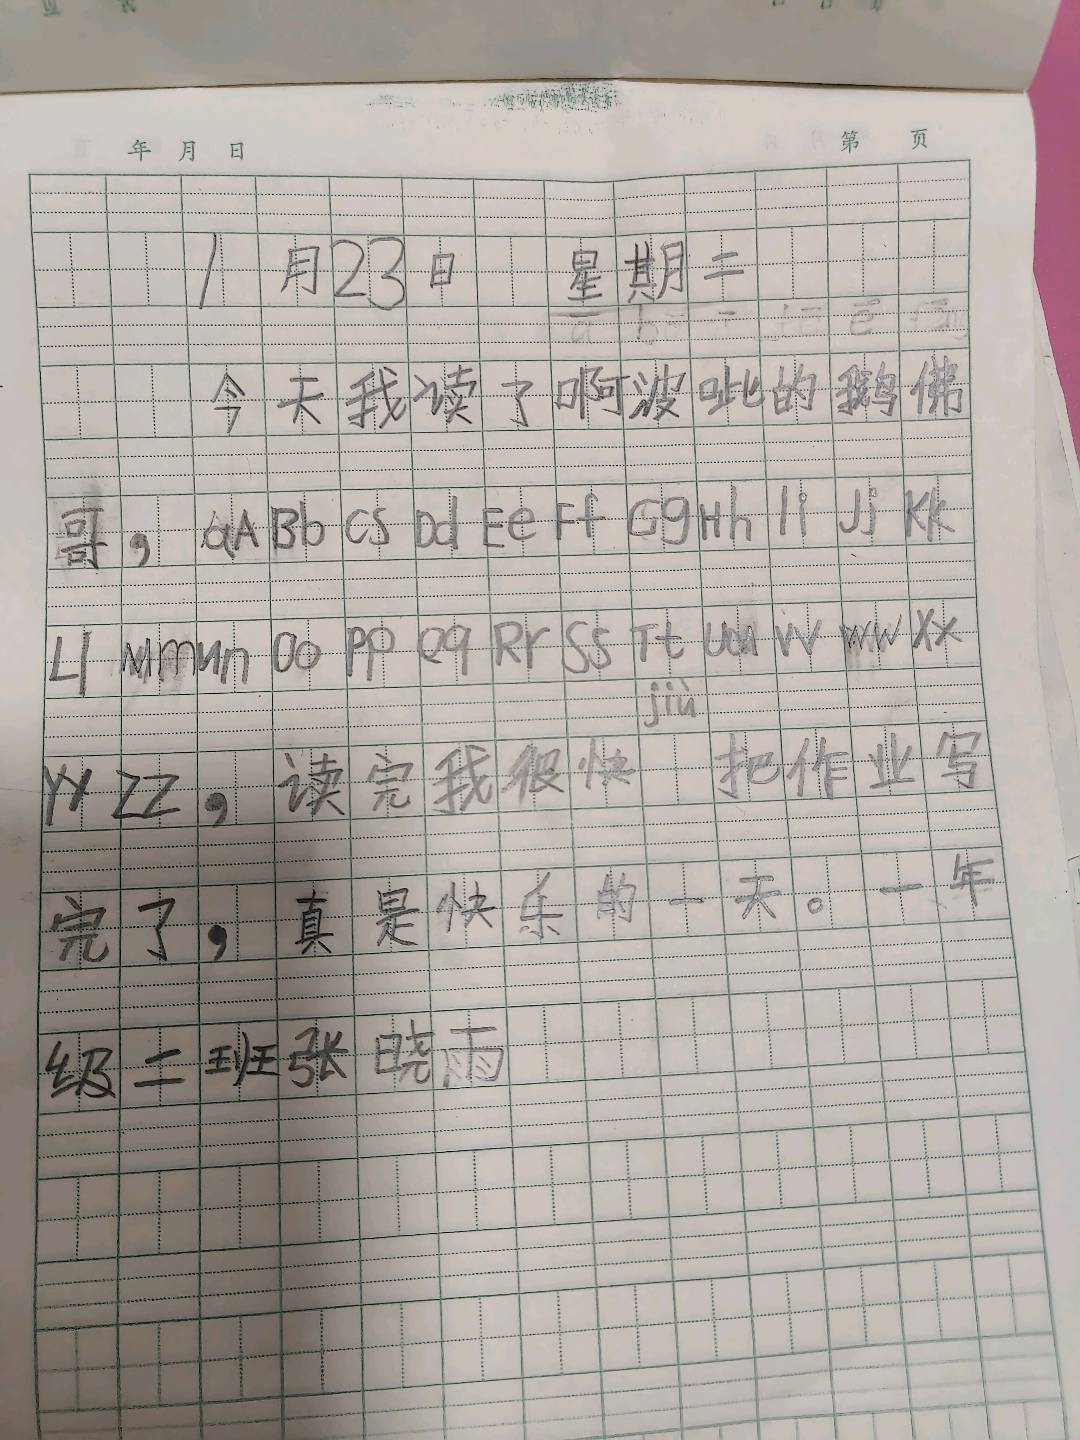 年 月 日 第 页
1月23日 星期二
今天我读了啊波呲的鹅佛
哥，aA Bb Cs Dd Ee Ff Gg Hh Ii Jj Kk
Ll Mm Nn Oo Pp Qq Rr Ss Tt Uu Vv Ww Xx
jiù
Yy Zz，读完我很快 把作业写
完了，真是快乐的一天。一年
级二班张晓雨